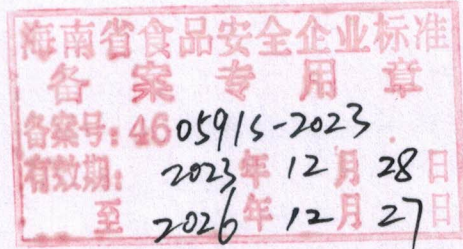 海南省食品安全企业标准
备案专用章
备案号：460591S-2023
有效期：2023年12月28日
至2026年12月27日